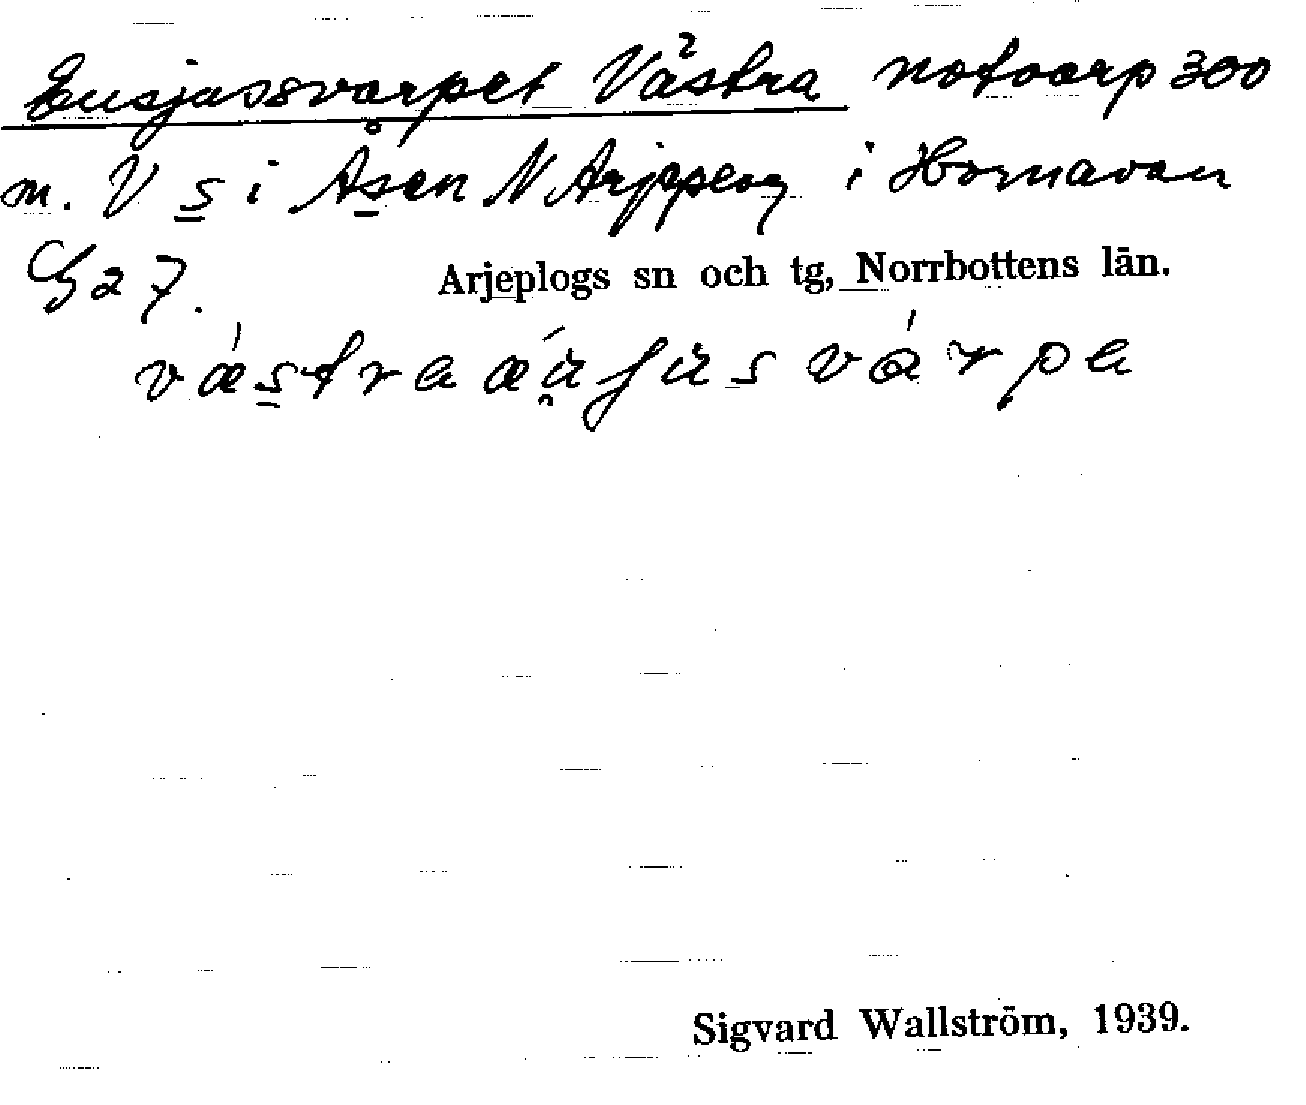 Eusjassvarpet Västra notvarp 300
m. V s i Åsen N Arjeplog i Hornavan
Ga 7.
Arjeplogs sn och tg, Norrbottens län.
vǽstra æújus várpa
Sigvard Wallström, 1939.